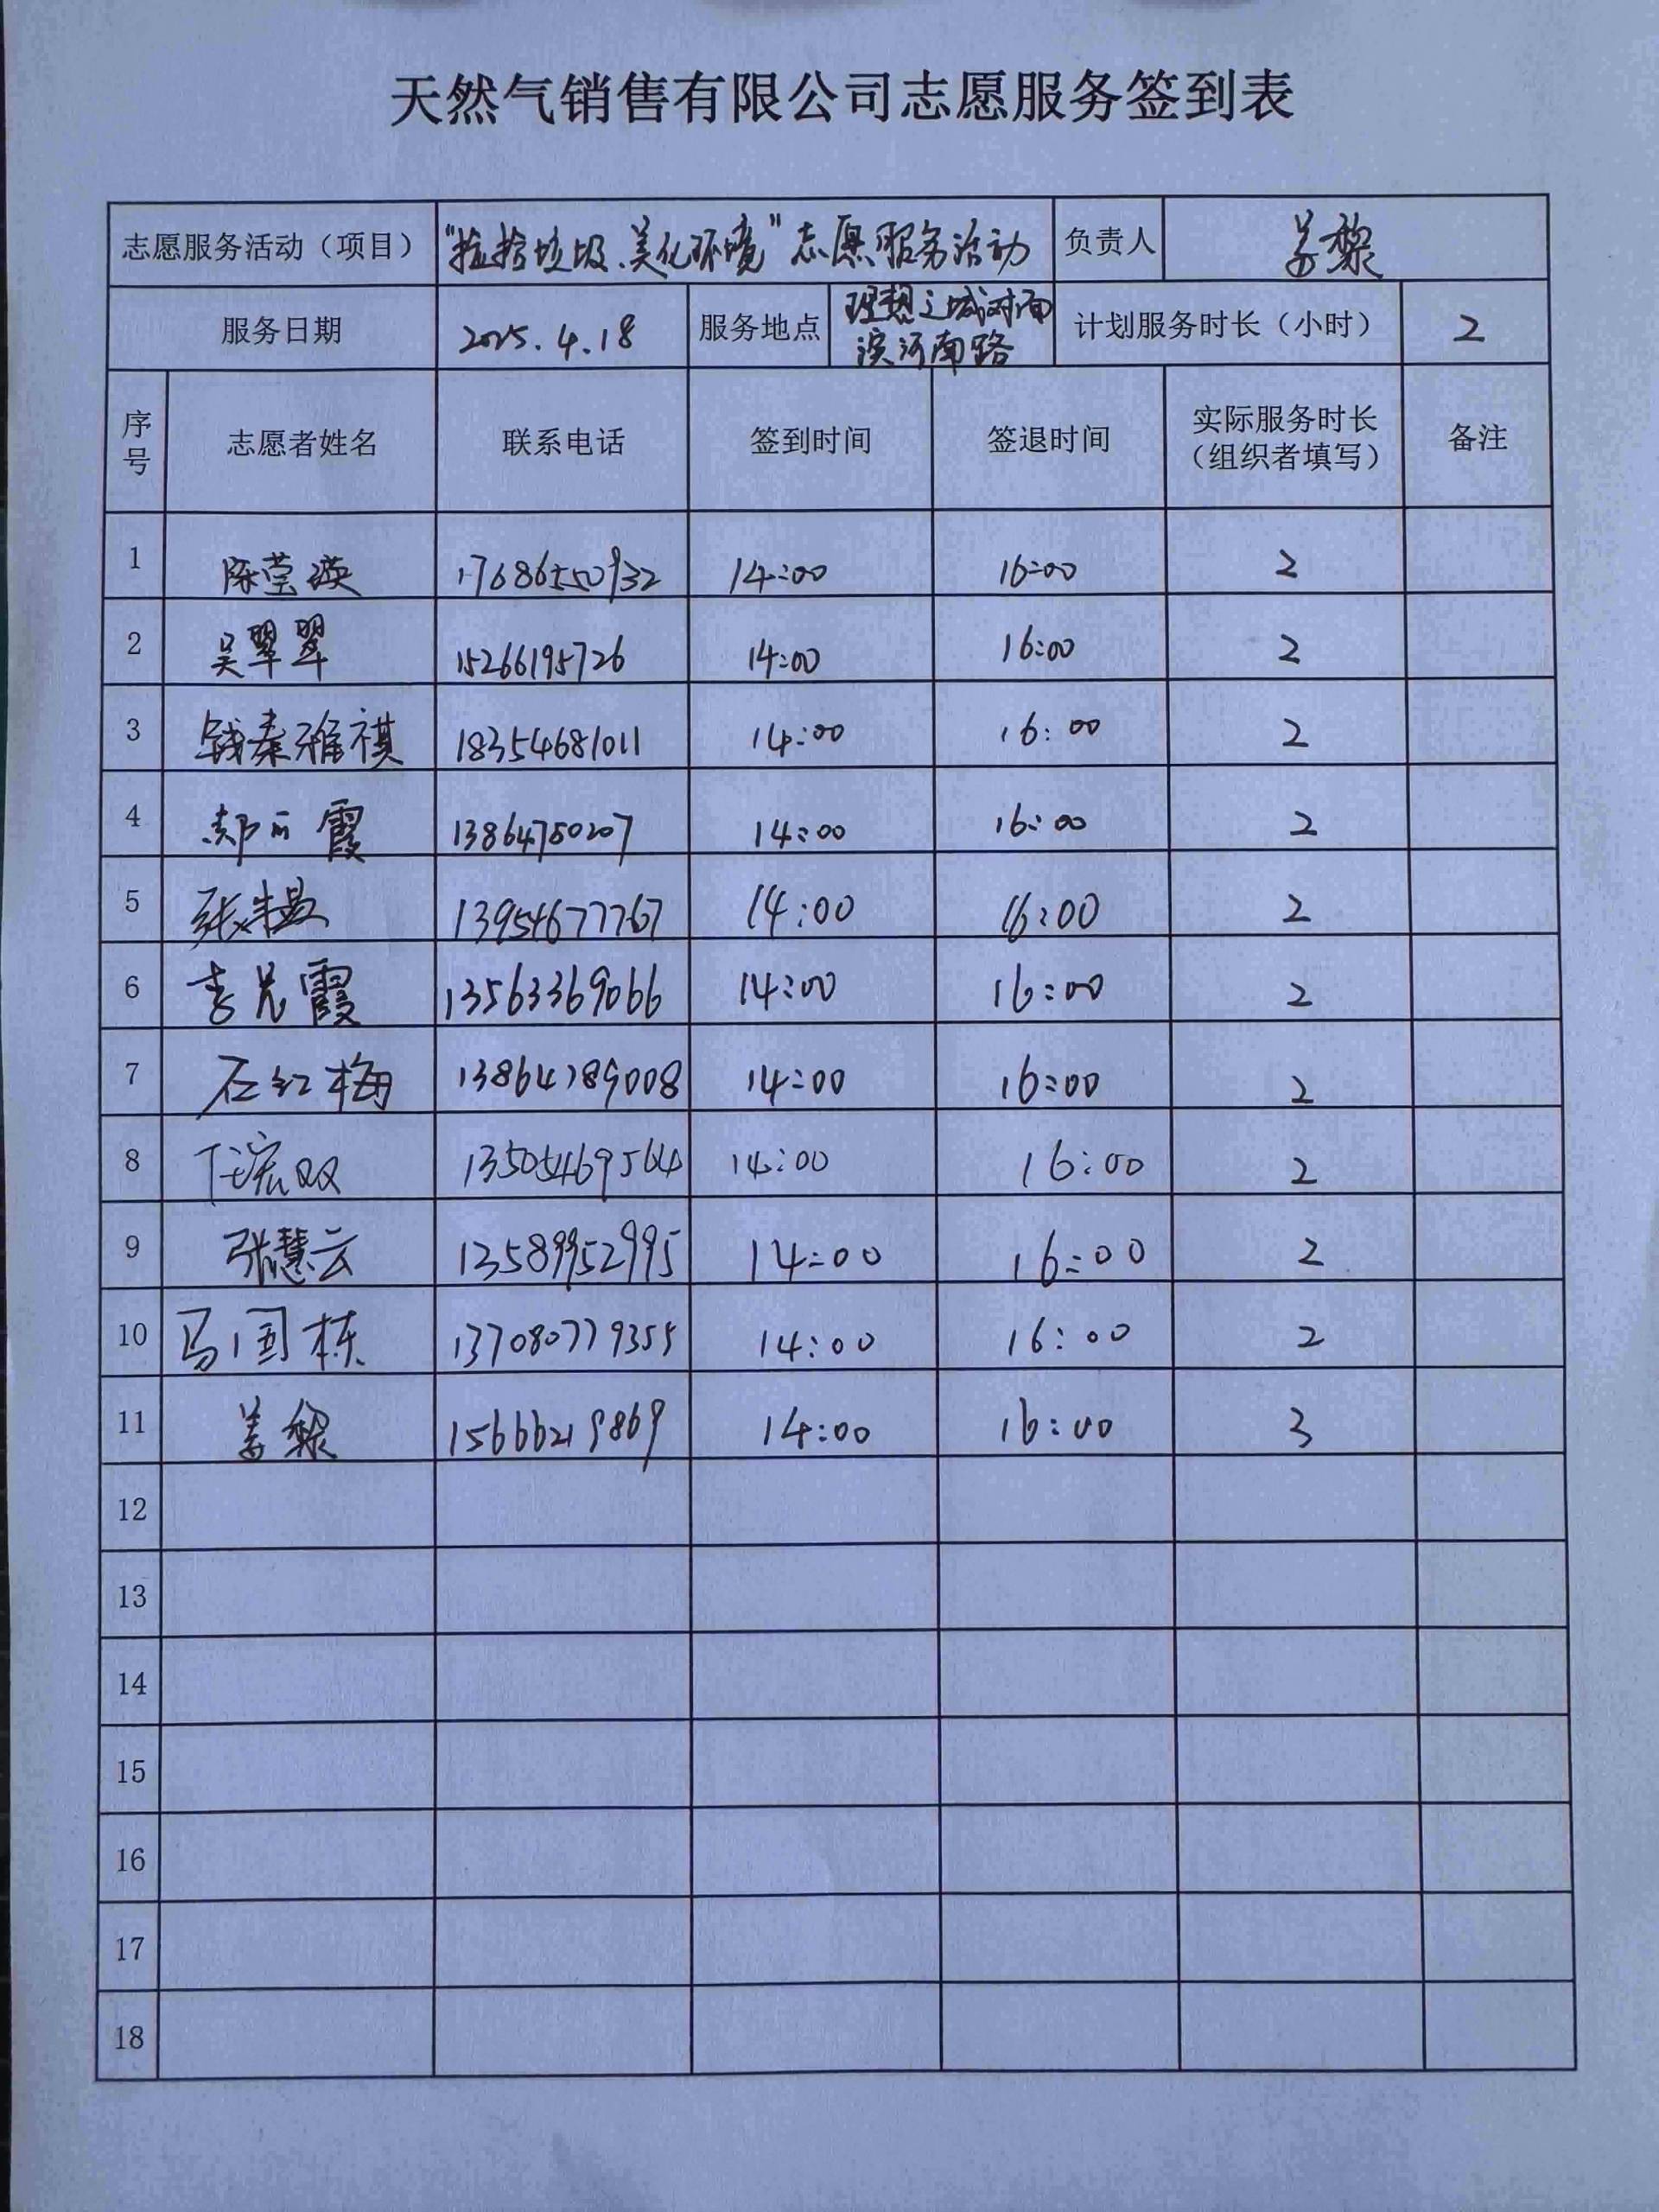 天然气销售有限公司志愿服务签到表
志愿服务活动（项目） “捡拾垃圾、美化环境”志愿服务活动 负责人 姜黎
服务日期 2025.4.18 服务地点 理想之城对面滨河南路 计划服务时长（小时） 2
序号 志愿者姓名 联系电话 签到时间 签退时间 实际服务时长（组织者填写） 备注
1 陈莹瑛 17686550932 14:00 16:00 2
2 吴翠翠 15266195726 14:00 16:00 2
3 钱秦雅祺 18354681011 14:00 16:00 2
4 郝丽霞 13864780207 14:00 16:00 2
5 张 13954677767 14:00 16:00 2
6 李兄霞 13563369066 14:00 16:00 2
7 石红梅 13864789008 14:00 16:00 2
8 任宏双 13505469564 14:00 16:00 2
9 张慧云 13589952995 14:00 16:00 2
10 马国栋 137080779355 14:00 16:00 2
11 姜黎 15666219869 14:00 16:00 3
12
13
14
15
16
17
18